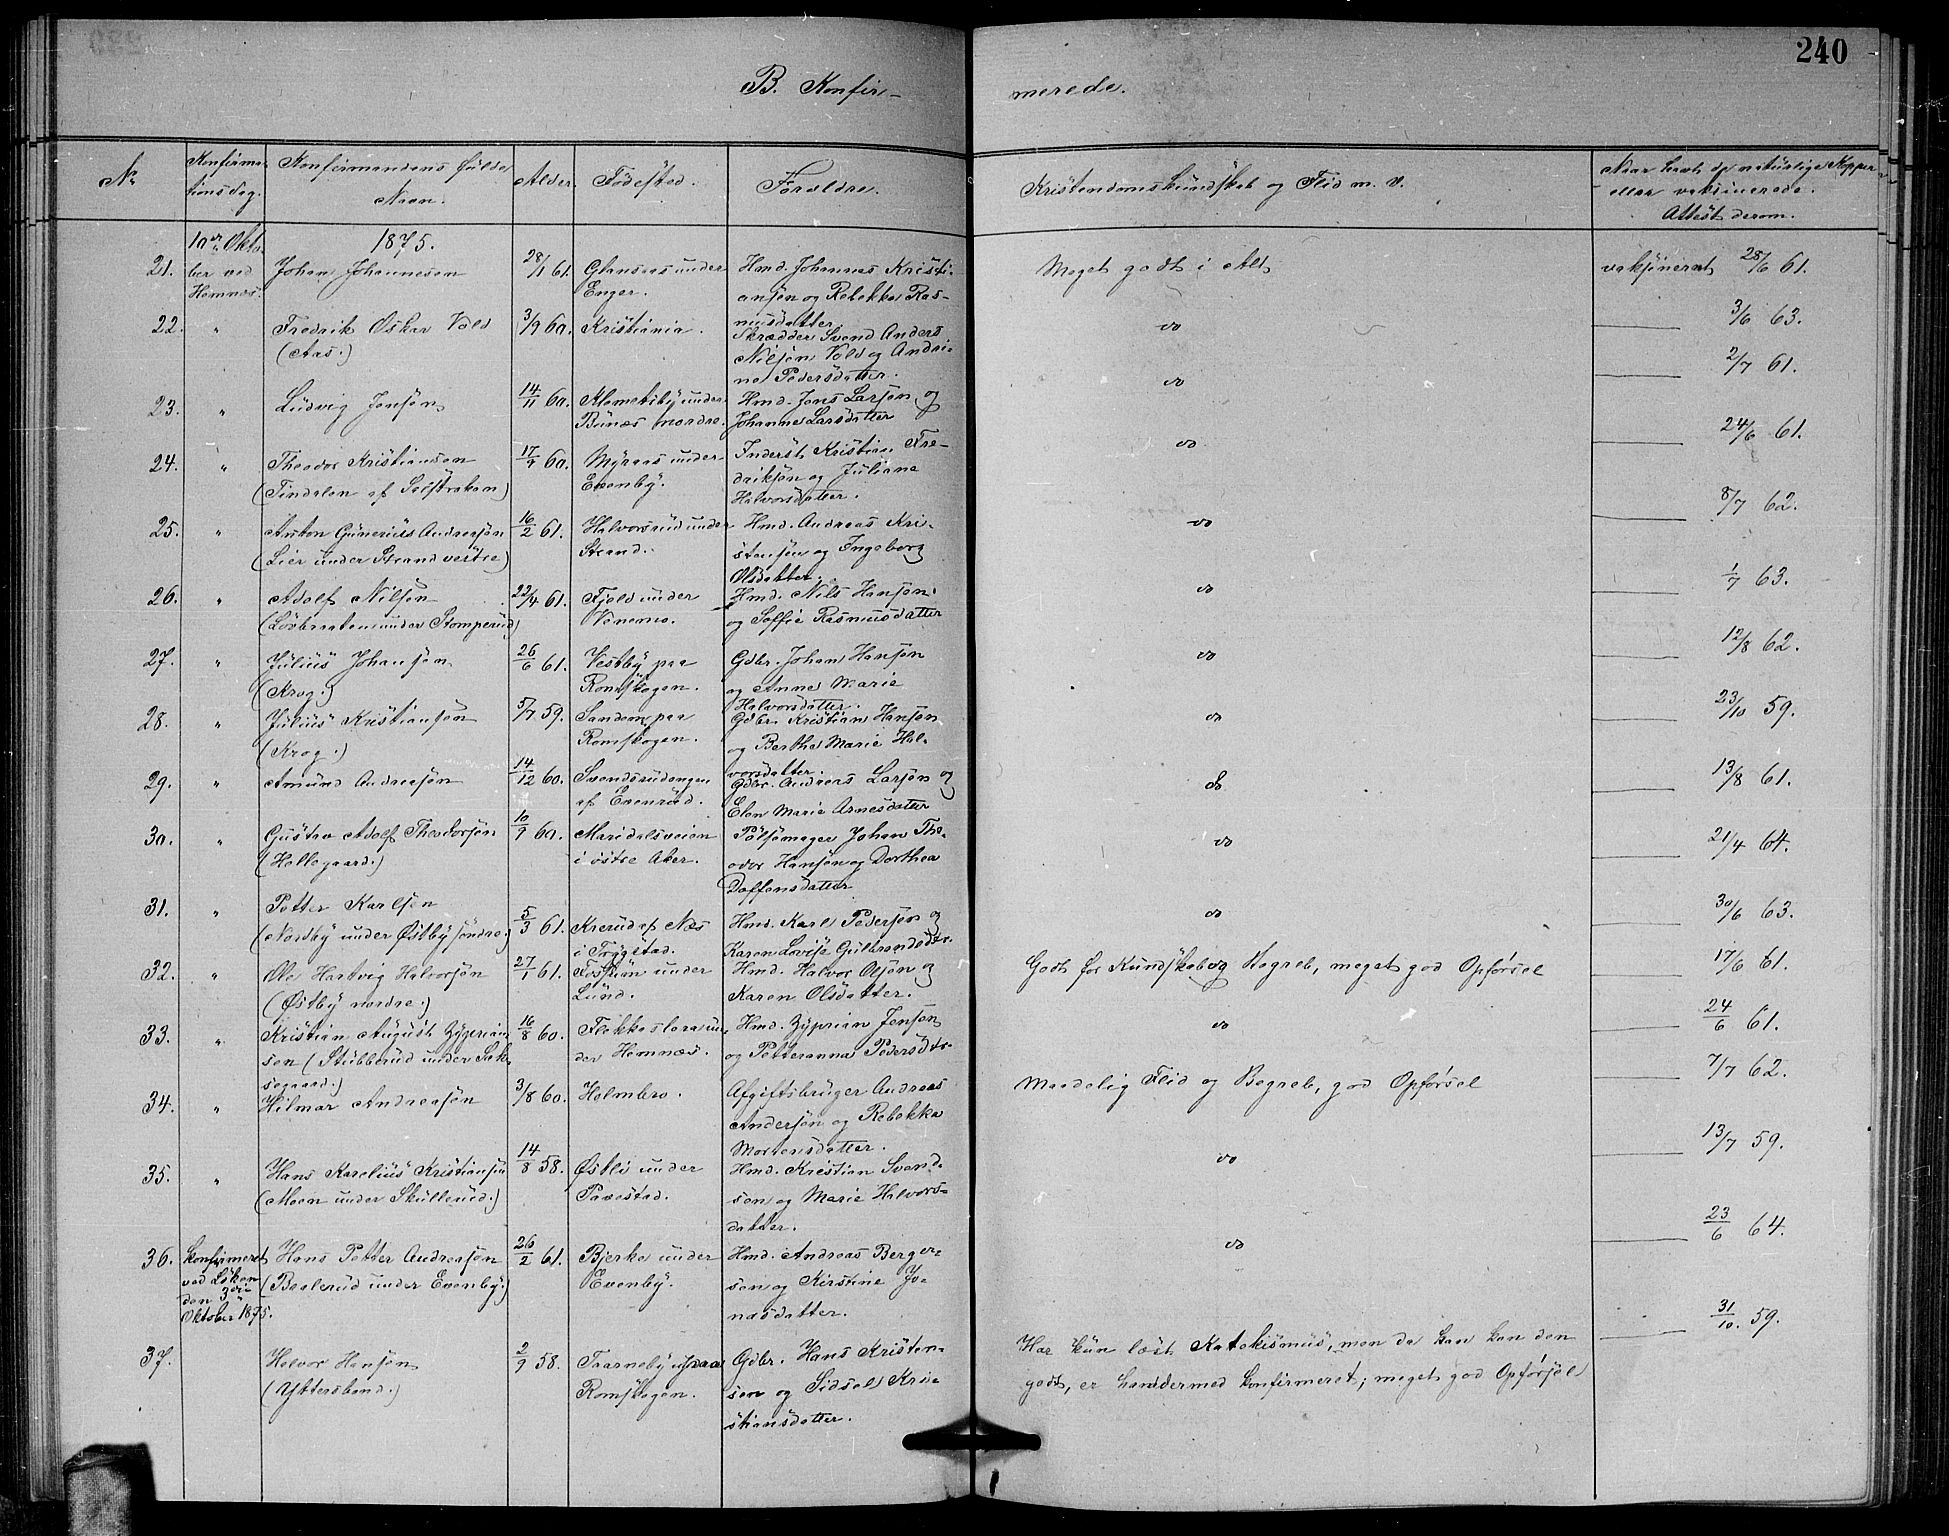 240
B. Konfir-
merede.
No
Konfirma-
tionsdag.
Konfirmandens fulde
Navn.
Alder.
Fødested.
Forældre.
Kristendomskundskab og Flid m. v.
Naar havt de naturlige Kopper
eller vaksinerede.
Attest derom.
1875.
21. 10de Okto-
ber ved
Hemnæs.
Johan Johannesen
28/1 61.
Glansaas under
Enger.
Hmd. Johannes Kristi-
ansen og Rebekka Ras-
musdatter
Meget godt i Alt
vaksineret 28/6 61.
22. "
Fredrik Oskar Vold
(Aas.)
3/9 60.
Kristiania.
Skrædder Svend Anders
Nilsen Vold og Andri-
ne Pedersdatter.
do
3/6 63.
23. "
Ludvig Jensen
14/11 60.
Klemetsby under
Bunæs nordre.
Hmd. Jens Larsen og
Johanne Larsdatter
do
2/7 61.
24. "
Theodor Kristiansen
(Tindalen af )
17/9 60.
Myraas under
Evenby.
Inderst Kristian Fre-
driksen og Juliane
Halvorsdatter.
do
24/6 61.
25. "
Anton Gunerius Andreasen
(Lier under Strand vestre)
16/2 61.
Halvorsrud under
Strand.
Hmd. Andreas Kri-
stensen og Ingeborg
Olsdatter.
do
8/7 62.
26. "
Adolf Nilsen
(Løvbraaten under Stomperud)
22/4 61.
Fjeld under
Venemo.
Hmd. Nils Hansen
og Soffie Rasmusdatter
do
1/7 63.
27. "
Julius Johansen
(Krog.)
26/6 61.
Vestby paa
Romskogen.
Gdbr. Johan Hansen
og Anne Marie
Halvorsdatter.
do
12/8 62.
28. "
Julius Kristiansen
(Krog.)
5/7 59.
Sandem paa
Romskogen.
Gdbr. Kristian Hansen
og Berthe Marie Hal-
vorsdatter.
do
23/10 59.
29. "
Amund Andreasen
14/12 60.
Svendsrudengen
af Evenrud.
Gdbr. Andreas Larsen og
Elen Marie Arnesdatter
do
13/8 61.
30. "
Gustav Adolf Theodorsen
(Hellegaard.)
10/9 60.
Maridalsveien
i østre Aker.
Pølsemager Johan The-
odor Hansen og Dorthea
Doffensdatter
do
21/4 64.
31. "
Petter Karlsen
(Nordby under Østby søndre.)
5/3 61.
Krerud af Næs
i Trygstad.
Hmd. Karl Pedersen og
Karen Lovise Gulbrandsdtr.
do
30/6 63.
32. "
Ole Hartvig Halvorsen
(Østby nordre.)
27/1 61.
Tostun under
Lund.
Hmd. Halvor Olsen og
Karen Olsdatter.
Godt for Kundskab og Begreb, meget god Opførsel
17/6 61.
33. "
Kristian August Zyprian-
sen (Stubberud under Sik-
segaard.)
16/8 60.
Flekkeslora un-
der Hemnæs.
Hmd. Zyprian Jensen
og Petteranna Pedersdtr.
do
24/6 61.
34. "
Hilmar Andreasen
3/8 60.
Holmbro.
Afgiftsbruger Andreas
Andersen og Rebekka
Mortensdatter.
Maadelig Flid og Begreb, god Opførsel
7/7 62.
35. "
Hans Karelius Kristiansen
(Moen under Skullerud.)
14/8 58.
Østli under
Pavestad.
Hmd. Kristian Svend-
sen og Marie Halvors-
datter.
do
13/7 59.
36. Konfirmeret
ved Løken
den 3die
Oktober 1875.
Hans Petter Andreasen
(Beslerud under Evenby.)
26/2 61.
Bjerke under
Evenby.
Hmd. Andreas Berger-
sen og Kirstine Jo-
nasdatter.
do
23/6 64.
37.
Halvor Hansen
(Yttersbend.)
2/9 58.
Taarneby paa
Romskogen.
Gdbr. Hans Kristen-
sen og Sidsel Kri-
stiansdatter.
Har kun læst Katekismus, men da han kan den
godt, er han dermed konfirmeret; meget god Opførsel
31/10 59.